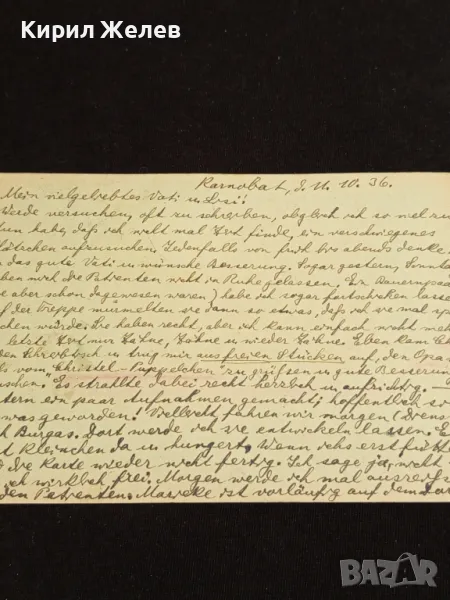 Кирил Желев
Karnobat, d. 11. 10. 36.
Mein vielgeliebtes Vati u.
Werde versuchen, oft zu schreiben, obgleich ich so viel zu
tun habe, daß ich nicht mal Zeit finde, ein verschwiegenes
Plätzchen aufzusuchen. Jedenfalls von früh bis abends denke
an das gute Vati u. wünsche Besserung. Sogar gestern, Sonntag
ben mich die Patienten nicht in Ruhe gelassen. Ein Bauernpaar
e aber schon dagewesen waren) habe ich sogar fortschicken lasse
f der Treppe murmelten sie dann so etwas, daß ich sie mal sp
chen würde. Sie haben recht, aber ich kann einfach nicht mehr
letzte Zeit nur Zähne, Zähne u. wieder Zähne. Eben kam
Schreibtisch u. trug mir aus freien Stücken auf, den Opa
vom Christel-Püppelchen zu grüßen u. gute Besserung
schen." Es strahlte dabei recht herzlich u. aufrichtig. —
tern ein paar Aufnahmen gemacht, hoffentlich
was geworden! Vielleicht fahren wir morgen (Diens
Burgas. Dort werde ich sie entwickeln lassen. E
Kleinchen da u. hungert. Wenn ichs erst fütt
die Karte wieder nicht fertig. Ich sage ja, nicht
ich wirklich frei. Morgen werde ich mal ausreiß
den Patienten. ist vorläufig auf dem
BAZAR
.bg